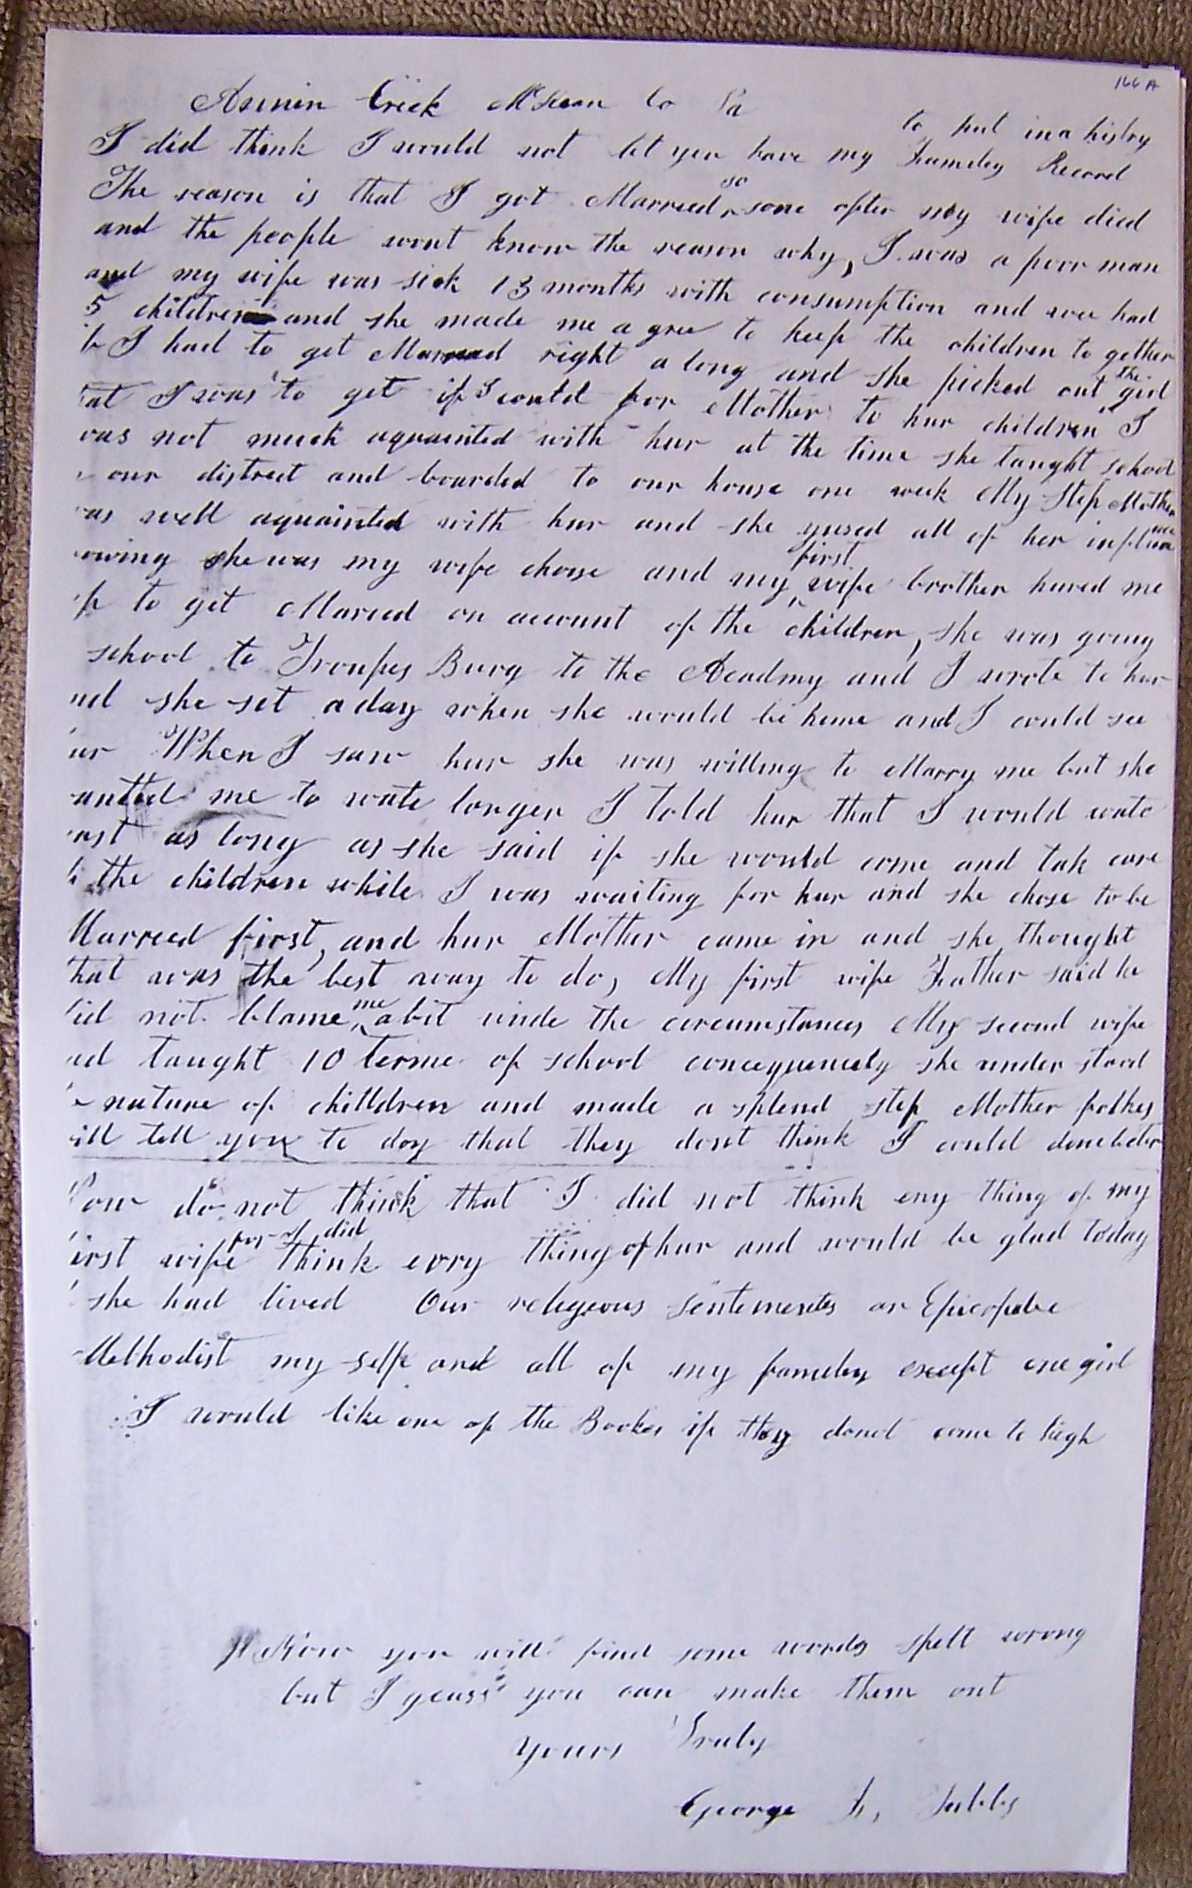 166 A
Annin Creek McKean Co Pa
to put in a histry
I did think I would not let you have my Fameley Record
The reason is that I got Marreed so sone after my wife died
and the people wont know the reason why, I was a poor man
and my wife was sick 13 months with consumption and wee had
5 children and she made me agree to keep the children to gether
if I had to get Marreed right a long and she picked out the girl
at I was to get if I could for Mother to hur children I
was not muck aquainted with hur at the time she taught school
our distrect and boarded to our house one week My Step Mother
as well aquainted with hur and she yused all of her influance
owing she was my wife choise and my first wife brother hured me
to get Mareed on account of the children, she was going
school to Troupes Burg to the Acadmy and I wrote to hur
nd she set a day when she would be home and I could see
ur When I saw hur she was willing to Marry me but she
anted me to wate longer I told hur that I would wate
ust as long as she said if she would come and tak care
the children while I was waiting for hur and she chose to be
Marreed first, and hur Mother came in and she thought
that was the best way to do, My first wife Feather said he
did not blame me a bit unde the circumstances My second wife
ad taught 10 terme of school conceqquencely she under stood
e nature of chilldren and made a splend step Mother folkes
ill tell you to day that they dont think I could done better
Now do not think that I did not think eny thing of my
first wife for I did think evry thing of hur and would be glad today
she had lived Our relegeous sentements ar Epicopalie
Methodist my self and all of my fameley except one girl
I would like one of the Bookes if they donot come to high
Now you will find some words spelt wrong
but I geass you can make them out
Yours Truly
George Tubbs